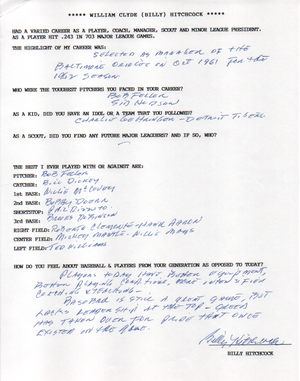 ***** WILLIAM CLYDE (BILLY) HITCHCOCK *****
HAD A VARIED CAREER AS A PLAYER, COACH, MANAGER, SCOUT AND MINOR LEAGUE PRESIDENT.
AS A PLAYER HIT .243 IN 703 MAJOR LEAGUE GAMES.
THE HIGHLIGHT OF MY CAREER WAS:
SELECTED AS MANAGER OF THE
BALTIMORE ORIOLES IN OCT 1961 FOR THE
1962 SEASON
WHO WERE THE TOUGHEST PITCHERS YOU FACED IN YOUR CAREER?
BOB FELLER
SID HUDSON
AS A KID, DID YOU HAVE AN IDOL OR A TEAM THAT YOU FOLLOWED?
CHARLIE GEHRINGER - DETROIT TIGERS
AS A SCOUT, DID YOU FIND ANY FUTURE MAJOR LEAGUERS? AND IF SO, WHO?
THE BEST I EVER PLAYED WITH OR AGAINST ARE:
PITCHER: BOB FELLER
CATCHER: BILL DICKEY
1st BASE: WILLIE McCOVEY
2nd BASE: BOBBY DOERR
SHORTSTOP: PHIL RIZZUTO
3rd BASE: BROOKS ROBINSON
RIGHT FIELD: ROBERTO CLEMENTE - HANK AARON
CENTER FIELD: MICKEY MANTLE - WILLIE MAYS
LEFT FIELD: TED WILLIAMS
HOW DO YOU FEEL ABOUT BASEBALL & PLAYERS FROM YOUR GENERATION AS OPPOSED TO TODAY?
PLAYERS TODAY HAVE BETTER EQUIPMENT,
BETTER PLAYING CONDITIONS, MORE INTENSIFIED
COACHING & TEACHING -
BASEBALL IS STILL A GREAT GAME, BUT
LACKS LEADERSHIP AT THE TOP - GREED
HAS TAKEN OVER FOR PRIDE THAT ONCE
EXISTED IN THE GAME.
Billy Hitchcock
BILLY HITCHCOCK